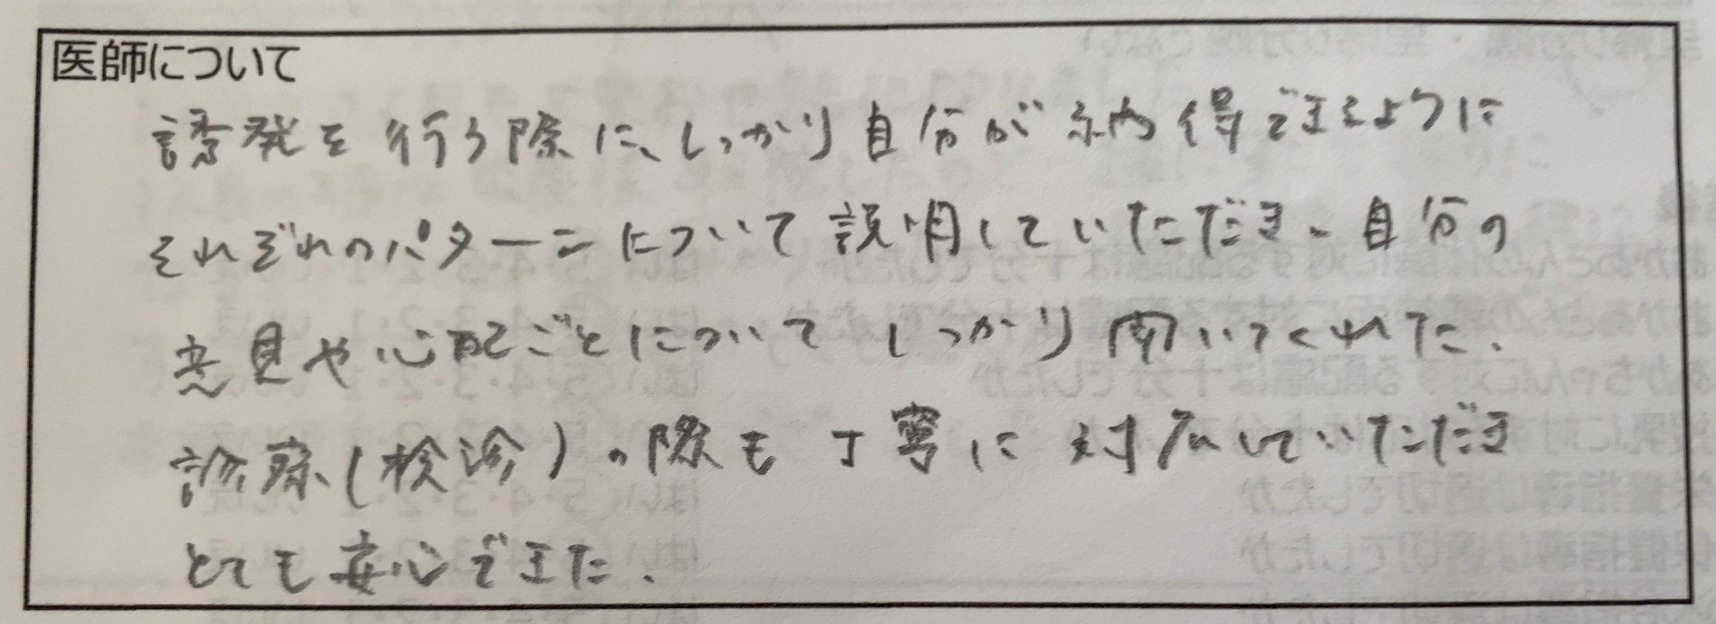 医師について
誘発を行う際に、しっかり自分が納得できるように
それぞれのパターンについて説明していただき、自分の
意見や心配ごとについてしっかり聞いてくれた。
診察(検診)の際も丁寧に対応していただき
とても安心できた。